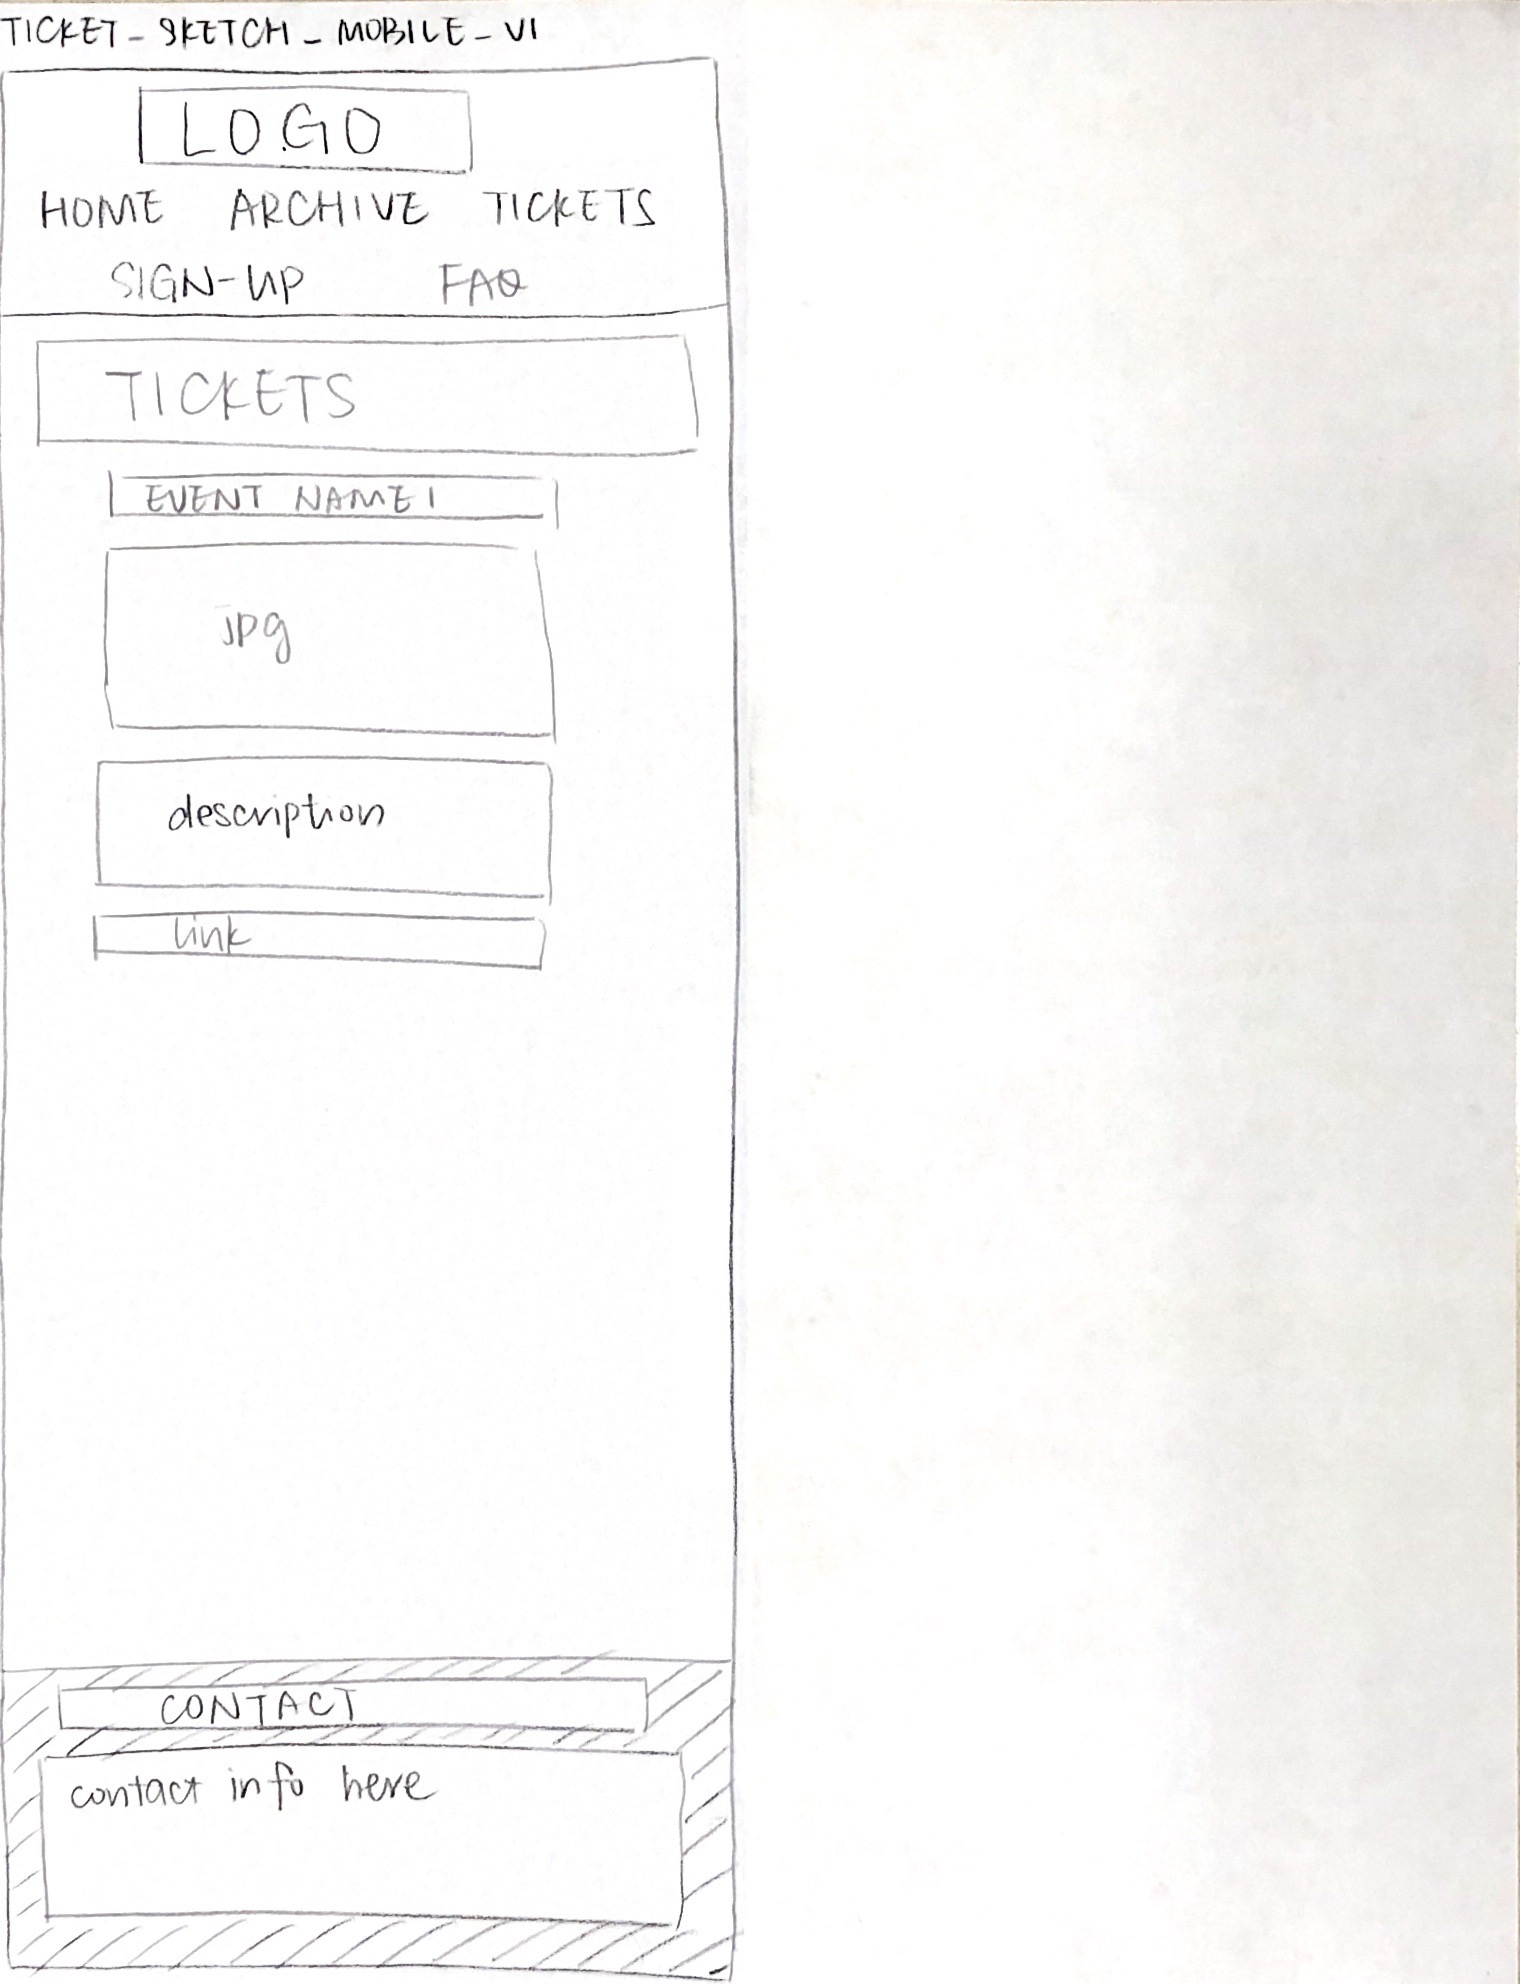 TICKET_SKETCH_MOBILE_V1
LOGO
HOME ARCHIVE TICKETS
SIGN-UP FAQ
TICKETS
EVENT NAME 1
jpg
description
link
CONTACT
contact info here